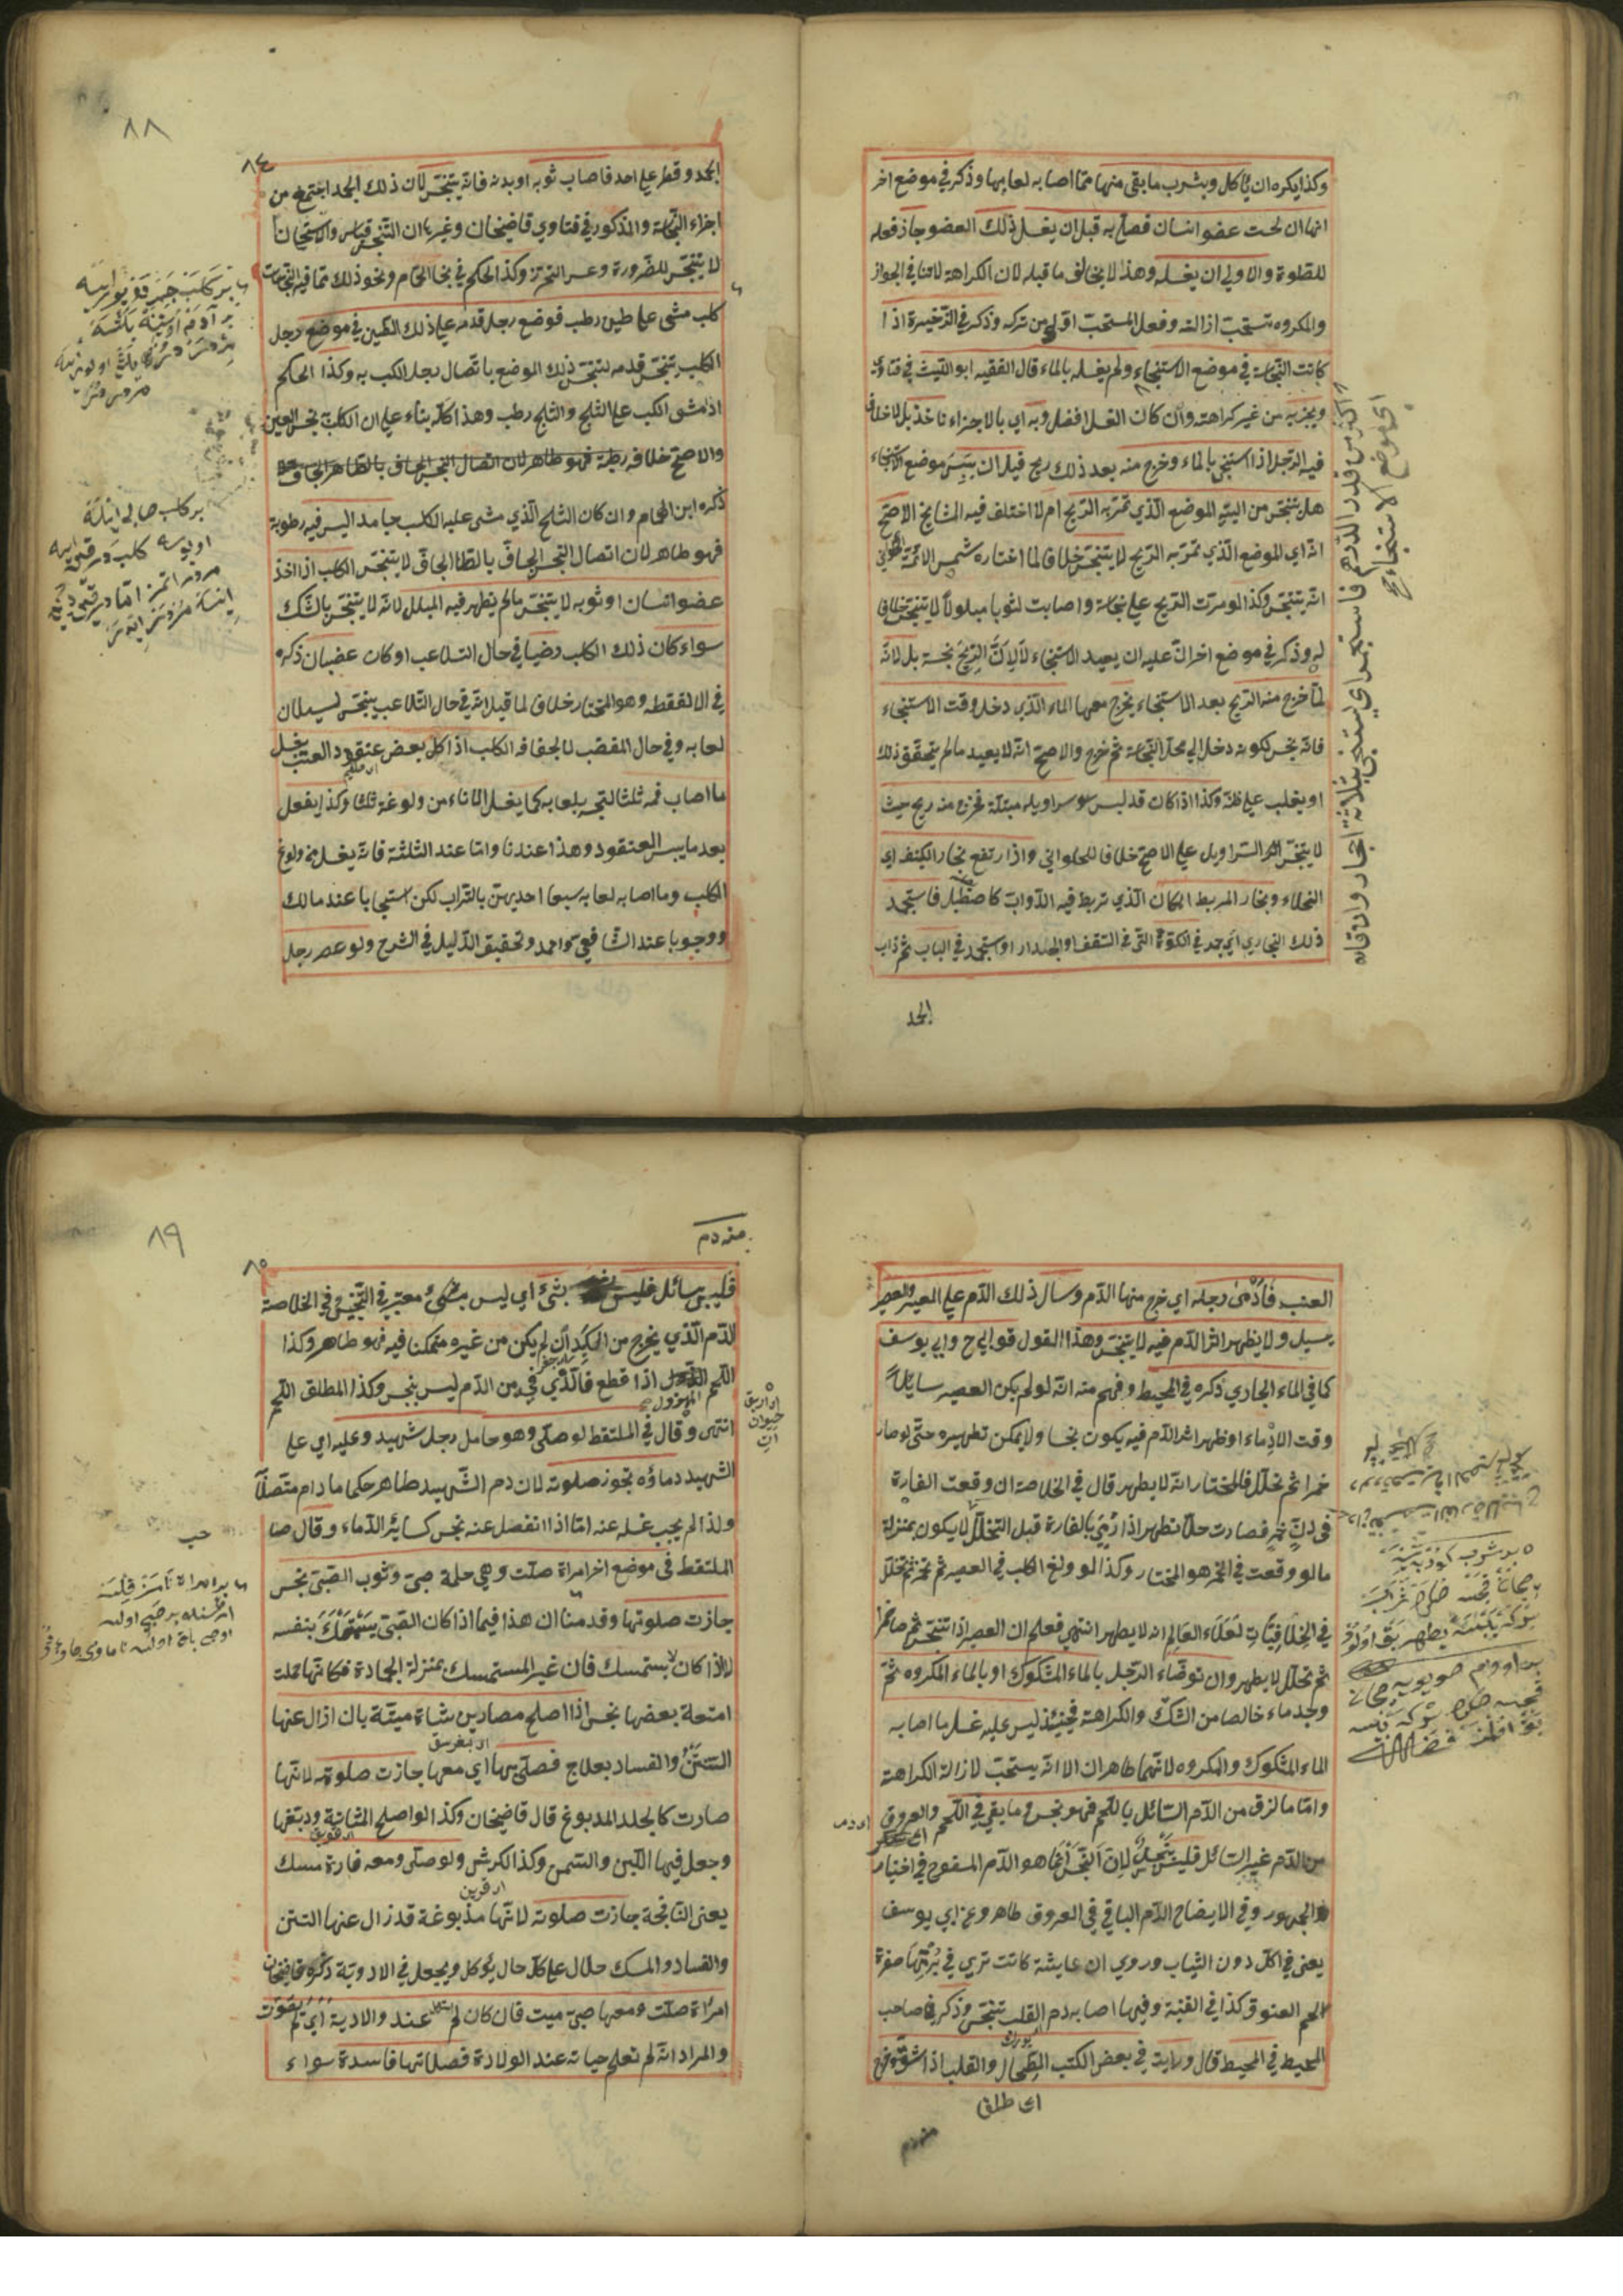 وكذا يكره ان يأكل ويشرب ما بقى منها مما اصابه لعابها وذكر في موضع اخر
انها ان لحست عضو انسان فصلى به قبل ان يغسل ذلك العضو جاز فعله
للصلوة والاولى ان يغسله وهذا لا يخالف ما قبله لان الكراهة لا تنافي الجواز
والمكروه تستحب ازالته وفعل المستحب اولى من تركه وذكر في الذخيرة اذا
كانت النجاسة في موضع الاستنجاء ولم يغسله بالماء قال الفقيه ابو الليث في فتاواه
ويجزيه من غير كراهته وان كان الغسل افضل وبه اي بالاجزاء ناخذ بلا خلاف
فيه الرجل اذا استنجى بالماء وخرج منه بعد ذلك ريح قبل ان ييبس موضع الاستنجاء
هل يتنجس من اليته الموضع الذي تمر به الريح ام لا اختلف فيه المشايخ الاصح
انه اي الموضع الذي تمر به الريح لا يتنجس خلافا لما اختاره شمس الائمة الحلواني
انه يتنجس وكذا لو مرت الريح على نجاسة واصابت ثوبا مبلولا لا يتنجس خلافا
له وذكر في موضع اخر ان عليه ان يعيد الاستنجاء لا لان الريح نجسة بل لانه
لما خرج منه الريح بعد الاستنجاء يخرج معها الماء الذي دخل وقت الاستنجاء
فانه نجس لكونه دخل الى محل النجاسة ثم خرج والاصح انه لا يعيد ما لم يتحقق ذلك
او يغلب على ظنه وكذا اذا كان قد لبس سراويله مبتلة فخرج منه ريح حيث
لا يتنجس السراويل على الاصح خلافا للحلواني واذا ارتفع بخار الكنيف اي
الخلاء وبخار المربط المكان الذي تربط فيه الدواب كاصطبل فاستجمد
ذلك البخار اي جمد في الكوة التي في السقف او الجدار او استجمد في الباب ثم ذاب
الجمد
اكثر من قدر الدرهم فاستجمر اي استنجى بثلاثة احجار وانقاه
اي موضع الاستنجاء
٨٨
٨٤
الجمد وقطر على احد فاصاب ثوبه او بدنه فانه يتنجس لان ذلك الجمد اجتمع من
اجزاء النجاسة والمذكور في فتاوي قاضيخان وغيرها ان التنجس قياس والاستحسان
لا يتنجس للضرورة وعسر التحرز وكذا الحكم في بخار الحمام ونحو ذلك مما فيه النجاسات
كلب مشى على طين رطب فوضع رجل قدمه على ذلك الطين في موضع رجل
الكلب تنجس قدمه لتنجس ذلك الموضع باتصال رجل الكلب به وكذا الحكم
اذا مشى الكلب على الثلج والثلج رطب وهذا كله بناء على ان الكلب نجس العين
والاصح خلافه
ذكره ابن الهمام وان كان الثلج الذي مشى عليه الكلب جامدا ليس فيه رطوبة
فهو طاهر لان اتصال النجس الجاف بالطاهر الجاف لا يتنجس الكلب اذا اخذ
عضو انسان او ثوبه لا يتنجس ما لم يظهر فيه البلل لانه لا يتنجس بالشك
سواء كان ذلك الكلب راضيا في حال التلاعب او كان غضبان ذكره
في الملتقطة وهو المختار خلافا لما قيل انه في حال التلاعب ينجس لسيلان
لعابه وفي حال الغضب لا لجفافه الكلب اذا اكل بعض عنقود العنب يغسل
ما اصاب فمه ثلثا لنجسه بلعابه كما يغسل الاناء من ولوغه ثلثا وكذا يفعل
بعد ما يبس العنقود وهذا عندنا واما عند الثلثة فانه يغسل من ولوغ
الكلب وما اصابه لعابه سبعا احديهن بالتراب لكن استحبابا عند مالك
ووجوبا عند الشافعي واحمد وتحقيق الدليل في الشرح ولو عصر رجل
العنب فادمى رجله اي خرج منها الدم وسال ذلك الدم على العصير والعصير
يسيل ولا يظهر اثر الدم فيه لا يتنجس وهذا القول قول ابي ح وابي يوسف
كما في الماء الجاري ذكره في المحيط وفهم منه انه لو لم يكن العصير سايلا
وقت الادماء او ظهر اثر الدم فيه يكون نجسا ولا يمكن تطهيره حتى لو صار
خمرا ثم تخلل فالمختار انه لا يطهر قال في الخلاصة ان وقعت الفارة
في دن خمر فصارت خلا تطهر اذا رمي بالفارة قبل التخلل لا يكون بمنزلة
ما لو وقعت في الخمر هو المختار وكذا لو ولغ الكلب في العصير ثم تخمر ثم تخلل
في الخلافيات لعلاء العالم انه لا يطهر انتهى فعلم ان العصير اذا تنجس ثم صار خمرا
ثم تخلل لا يطهر وان توضأ الرجل بالماء المشكوك او بالماء المكروه ثم
وجد ماء خالصا من الشك والكراهة فحينئذ ليس عليه غسل ما اصابه
الماء المشكوك والمكروه لانهما طاهران الا انه يستحب لازالة الكراهة
واما ما لزق من الدم السائل باللحم فهو نجس وما بقي في اللحم والعروق
من الدم غير السائل فليس بنجس لان النجس انما هو الدم المسفوح في اختيار
الجمهور وفي الايضاح الدم الباقي في العروق طاهر وعن ابي يوسف
يعفى في الاكل دون الثياب وروي ان عايشة كانت تري في برمتها صفرة
لحم العنوق كذا في القنية وفيها اصابه دم القلب تنجس وذكر في صاحب
المحيط في المحيط قال ورايت في بعض الكتب الطحال والقلب اذا شق وخرج
اى طلاق
منه دم
٨٩
٨٥
منه دم
فليس بسائل فليس بشئ اي ليس بشئ معتبر في التنجس في الخلاصة
الدم الذي يخرج من الكبد ان لم يكن من غيره متمكنا فيه فهو طاهر وكذا
اللحم المهزول اذا قطع فالذي فيه من الدم ليس بنجس وكذا المطلق اللحم
انتهى وقال في الملتقط لو صلى وهو حامل رجل شهيد وعليه اي على
الشهيد دماؤه تجوز صلوته لان دم الشهيد طاهر حكما ما دام متصلا
ولذا لم يجب غسله عنه اما اذا انفصل عنه نجس كسائر الدماء وقال صا
حب
الملتقط في موضع اخر امراة صلت وهي حاملة صبي وثوب الصبي نجس
جازت صلوتها وقدمنا ان هذا فيما اذا كان الصبي يستمسك بنفسه
لا اذا كان لا يستمسك فان غير المستمسك بمنزلة الجمادة فكانها حملت
امتعة بعضها نجس اذا اصلح مصارين شاة ميتة بان ازال عنها
النتن والفساد بعلاج فصلى بها اي معها جازت صلوته لانها
صارت كالجلد المدبوغ قال قاضيخان وكذا لو اصلح المثانة ودبغها
وجعل فيها اللبن والسمن وكذا الكرش ولو صلى ومعه فارة مسك
يعنى النافجة جازت صلوته لانها مدبوغة قد زال عنها النتن
والفساد والمسك حلال على كل حال يؤكل ويجعل في الادوية ذكره قاضيخان
امراة صلت ومعها صبي ميت فان كان لم يستهل عند والادية اي لم يصوت
والمراد انه لم تعلم حياته عند الولادة فصلاتها فاسدة سواء